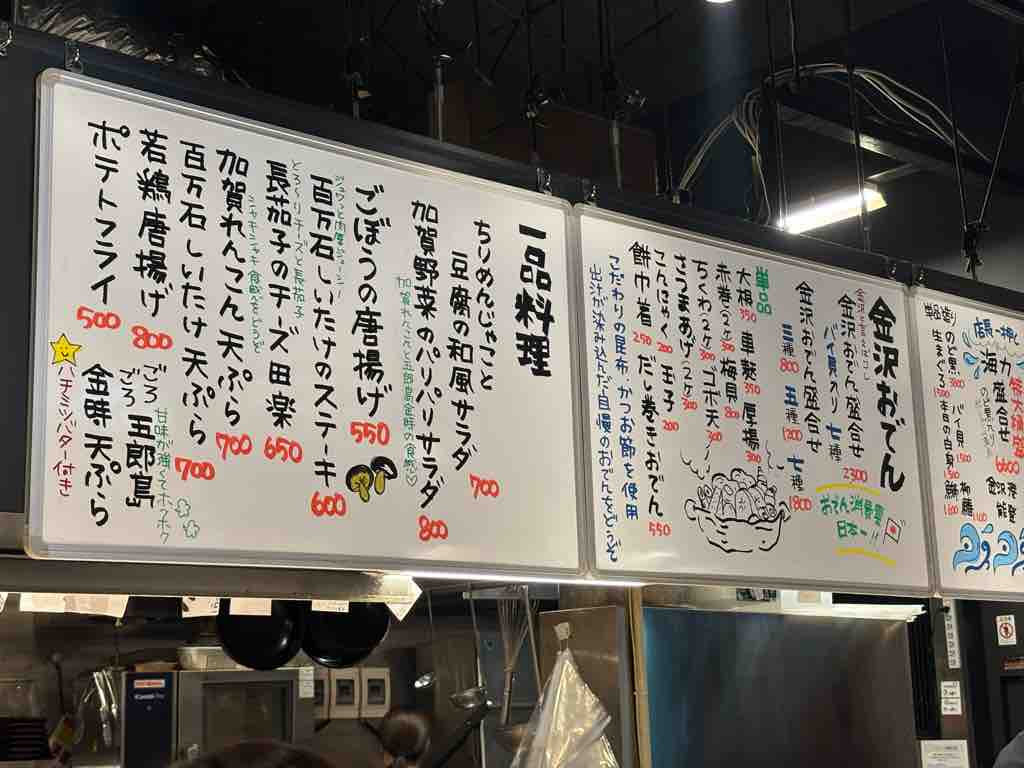 一品料理
ちりめんじゃこと
豆腐の和風サラダ
700
加賀野菜のパリパリサラダ
800
加賀れんこんと五郎島金時の食感♡
ごぼうの唐揚げ
550
ジュワっと肉厚ジューシー
百万石しいたけのステーキ
600
とろ〜りチーズと長茄子
長茄子のチーズ田楽
650
シャキシャキ食感をどうぞ
加賀れんこん天ぷら
700
百万石しいたけ天ぷら
700
若鶏唐揚げ
800
ポテトフライ
500
甘味が強くてホクホク
ごろごろ
五郎島
金時天ぷら
ハチミツバター付き
金沢おでん
金沢おでん盛合せ
バイ貝入り 七種
2300
金沢おでん盛合せ
三種 800
五種 1200
七種 1800
おでん消費量
日本一!!
単品
大根 350
車麩 350
厚揚 300
赤巻(2ヶ) 300
梅貝 800
ちくわ2ケ 300
ゴボ天 300
さつまあげ2ケ 300
こんにゃく 200
玉子 200
餅巾着 250
だし巻きおでん 550
こだわりの昆布、かつお節を使用
出汁が染み込んだ自慢のおでんをどうぞ
店長一押し
特大桶盛
海力
盛合せ
6600
金沢港
能登
単品造り
のど黒
バイ貝 1500
生まぐろ 1500
本日の白身